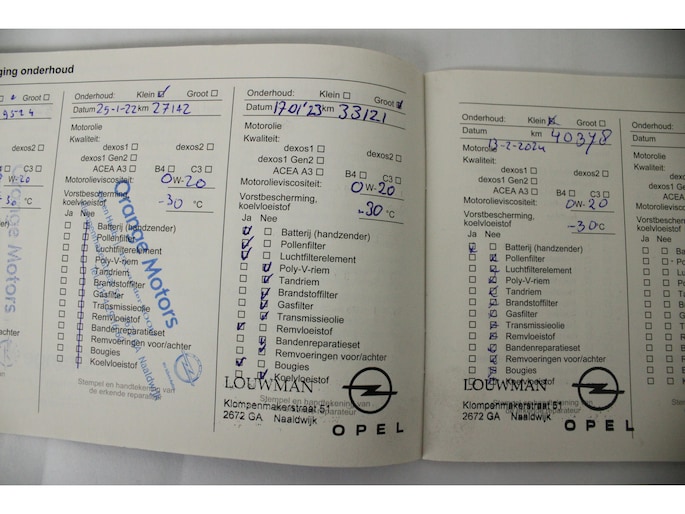 ging onderhoud
Groot
9524
C3
W-20
-30 °C
achter
Onderhoud: Klein Groot
Datum 25-1-22 km 27142
Motorolie
Kwaliteit:
dexos1 dexos2
dexos1 Gen2
ACEA A3 B4 C3
Motorolieviscositeit: 0W-20
Vorstbescherming,
koelvloeistof -30 °C
Ja Nee
Batterij (handzender)
Pollenfilter
Luchtfilterelement
Poly-V-riem
Tandriem
Brandstoffilter
Gasfilter
Transmissieolie
Remvloeistof
Bandenreparatieset
Remvoeringen voor/achter
Bougies
Koelvloeistof
Stempel en handtekening van
de erkende reparateur
Orange Motors
Naaldwijk
Onderhoud: Klein Groot
Datum 17 01 '23 km 33121
Motorolie
Kwaliteit:
dexos1 dexos2
dexos1 Gen2
ACEA A3 B4 C3
Motorolieviscositeit: 0W-20
Vorstbescherming,
koelvloeistof -30 °C
Ja Nee
Batterij (handzender)
Pollenfilter
Luchtfilterelement
Poly-V-riem
Tandriem
Brandstoffilter
Gasfilter
Transmissieolie
Remvloeistof
Bandenreparatieset
Remvoeringen voor/achter
Bougies
Koelvloeistof
Stempel en handtekening van
reparateur
LOUWMAN
Klompenmakerstraat 51
2672 GA Naaldwijk
OPEL
Onderhoud: Klein Groot
Datum 13-2-2024 km 40378
Motorolie
Kwaliteit:
dexos1 dexos2
dexos1 Gen2
ACEA A3 B4 C3
Motorolieviscositeit: 0W-20
Vorstbescherming,
koelvloeistof -30 °C
Ja Nee
Batterij (handzender)
Pollenfilter
Luchtfilterelement
Poly-V-riem
Tandriem
Brandstoffilter
Gasfilter
Transmissieolie
Remvloeistof
Bandenreparatieset
Remvoeringen voor/achter
Bougies
Koelvloeistof
Stempel en handtekening van
reparateur
LOUWMAN
Klompenmakerstraat 51
2672 GA Naaldwijk
OPEL
Onderhoud:
Datum
Motorolie
Kwaliteit:
Motorolieviscos
Vorstbescherm
koelvloeistof
Ja Nee